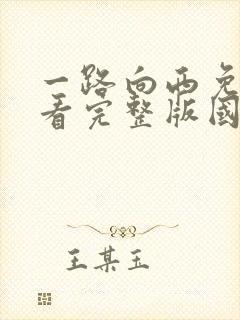 一路向西免
看完整版國
王某玉